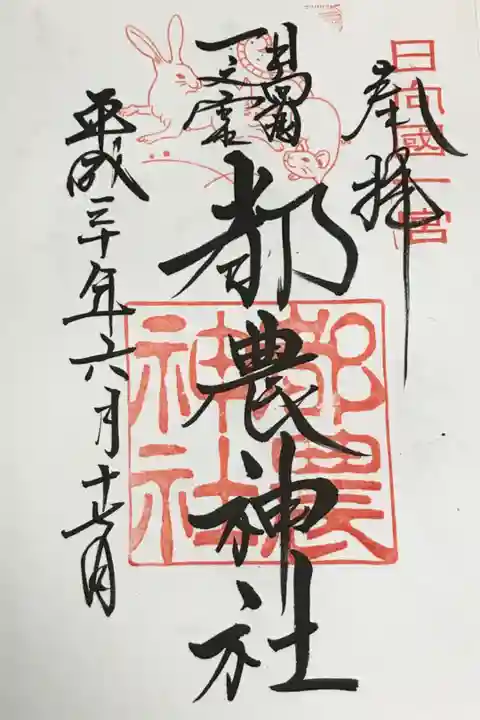 日向國一宮
奉拝
日向國
一之宮
都農神社
都農
神社
平成三十年六月十七日